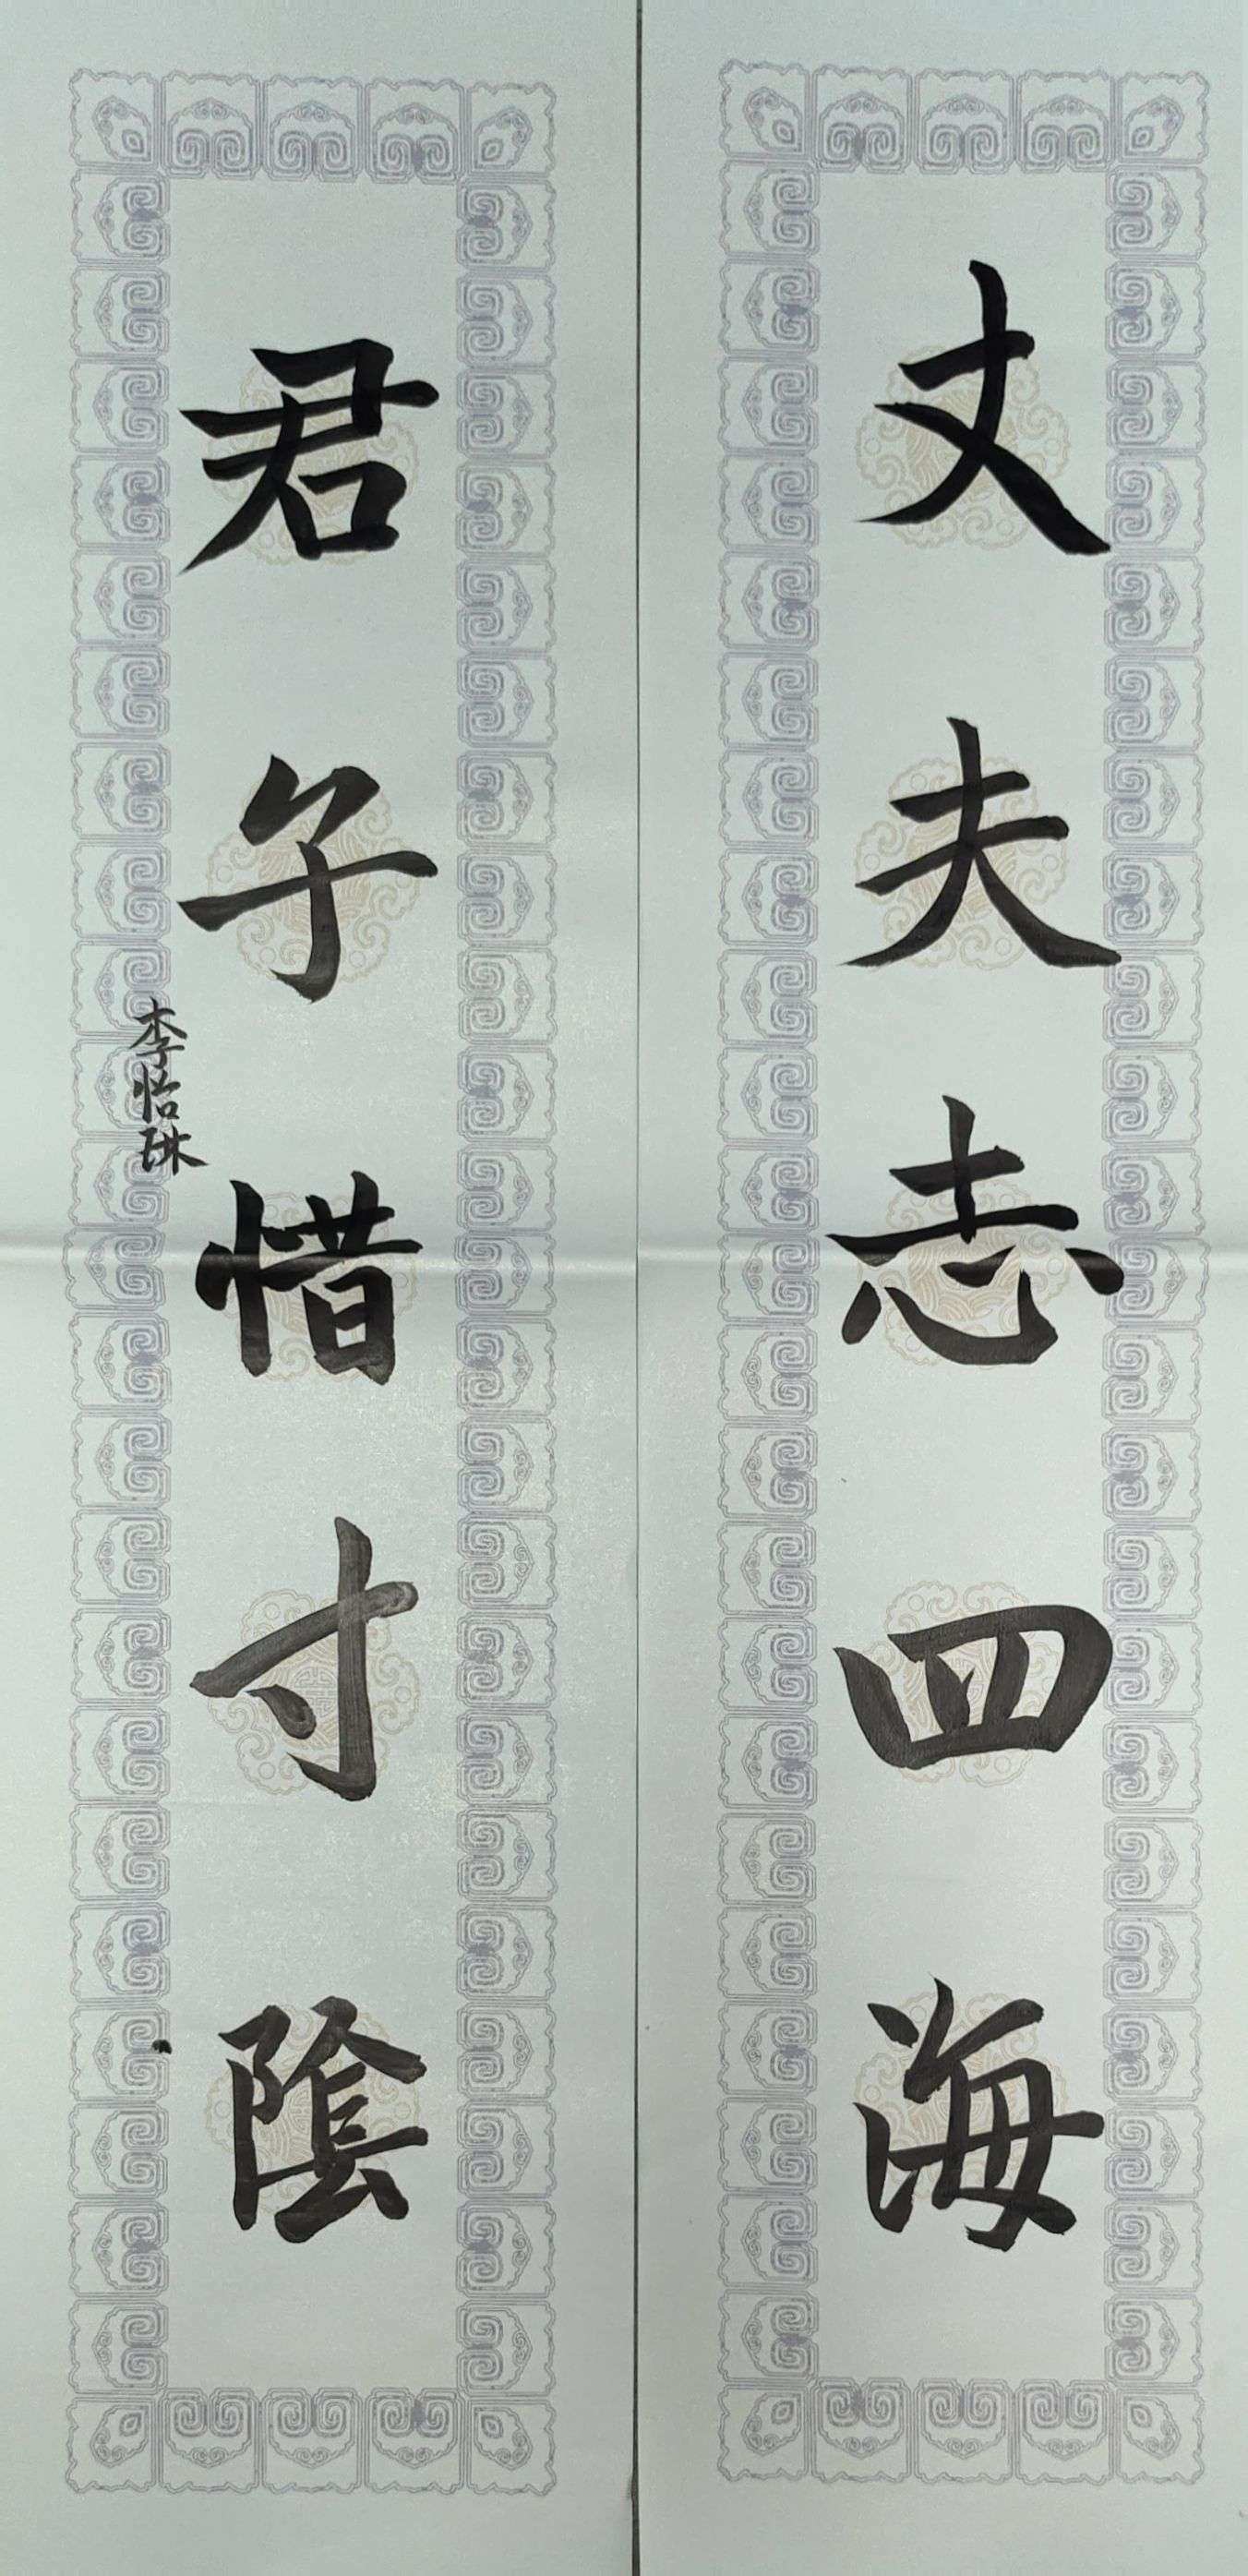 丈夫志四海
君子惜寸陰
李怡琳